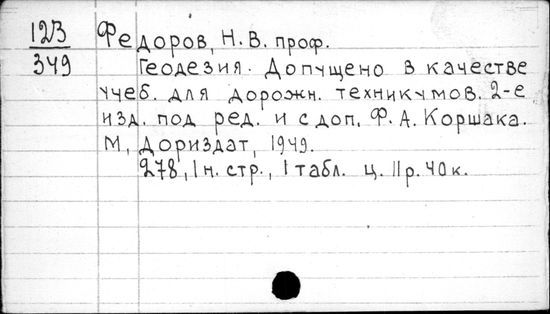 123 Федоров, Н. В. проф.
349 Геодезия. Допущено в качестве
учеб. для дорожн. техникумов. 2-е
изд. под ред. и с доп. Ф. А. Коршака.
М, Дориздат, 1949.
278, 1 н. стр., 1 табл. ц. 11 р. 40 к.